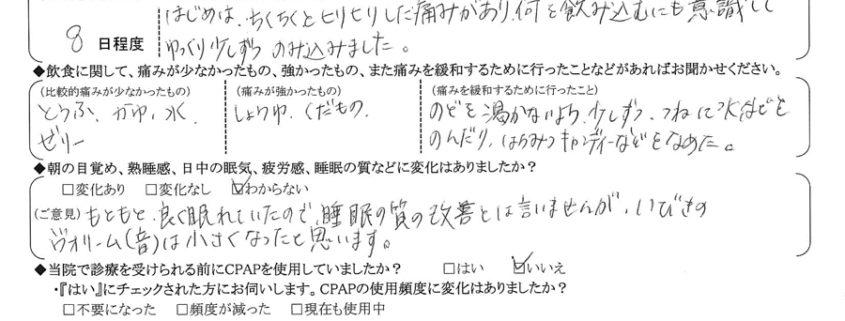 はじめは、ちくちくとヒリヒリした痛みがあり、何を飲み込むにも意識して
8 日程度 ゆっくり少しずつ のみ込みました。
◆飲食に関して、痛みが少なかったもの、強かったもの、また痛みを緩和するために行ったことなどがあればお聞かせください。
(比較的痛みが少なかったもの) (痛みが強かったもの) (痛みを緩和するために行ったこと)
とうふ、かゆ、水、 しょうゆ、くだもの、 のどを渇かないよう、少しずつ、つねに水などを
ゼリー のんだり、はちみつキャンディーなどをなめた。
◆朝の目覚め、熟睡感、日中の眠気、疲労感、睡眠の質などに変化はありましたか？
□変化あり □変化なし ☑わからない
(ご意見) もともと、良く眠れていたので、睡眠の質の改善とは言いませんが、いびきの
ヴォリーム(音)は小さくなったと思います。
◆当院で診療を受けられる前にCPAPを使用していましたか？ □はい ☑いいえ
・『はい』にチェックされた方にお伺いします。CPAPの使用頻度に変化はありましたか？
□不要になった □頻度が減った □現在も使用中